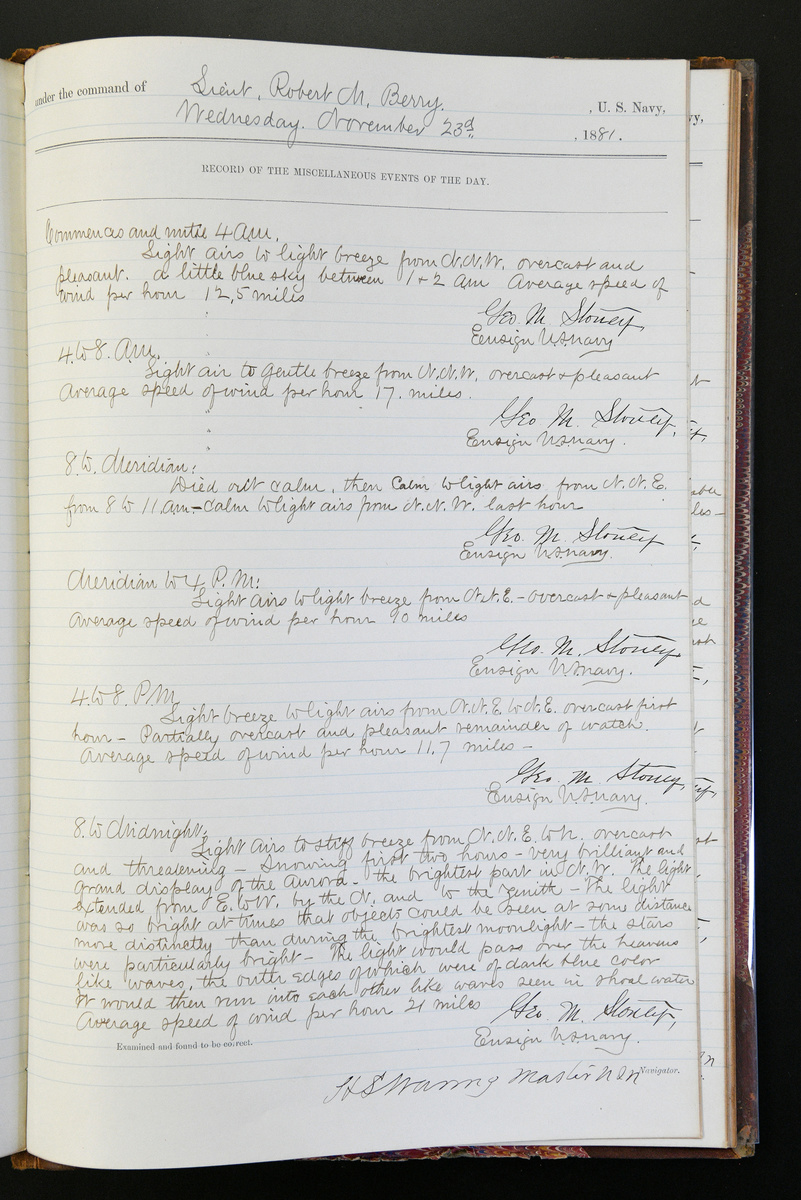 under the command of Lieut. Robert M. Berry. , U. S. Navy,
Wednesday. November 23d , 1881.
RECORD OF THE MISCELLANEOUS EVENTS OF THE DAY.
Commences and until 4 A.M.
Light airs to light breeze from N.N.W. overcast and
pleasant. a little blue sky between 1 & 2 am Average speed of
wind per hour 12,5 miles
Geo. M. Stoney,
Ensign U.S. Navy
4 to 8. A.M.
Light air to gentle breeze from N.N.W. overcast & pleasant
Average speed of wind per hour 17. miles.
Geo M. Stoney,
Ensign U.S. Navy.
8. to Meridian:
Died out calm, then Calm to light airs from N.N.E.
from 8 to 11. am - calm to light airs from N.N.W. last hour
Geo. M. Stoney
Ensign U.S. Navy.
Meridian to 4 P.M:
Light airs to light breeze from N.N.E. - overcast & pleasant
Average speed of wind per hour 10 miles
Geo. M. Stoney.
Ensign U.S. Navy.
4 to 8. P.M.
Light breeze to light airs from N.N.E. to N.E. overcast first
hour - Partially overcast and pleasant remainder of watch.
Average speed of wind per hour 11.7 miles -
Geo. M. Stoney,
Ensign U.S. Navy.
8. to Midnight:
Light airs to stiff breeze from N.N.E. to N. overcast
and threatening - Snowing first two hours - very brilliant and
grand display of the Aurora - the brightest part in N.W. The light
extended from E. to W. by the N. and to the Zenith - The light
was so bright at times that objects could be seen at some distance
more distinctly than during the brightest moonlight - the stars
were particularly bright - The light would pass over the heavens
like waves, the outer edges of which were of dark blue color
It would then run into each other like waves seen in shoal water
Average speed of wind per hour 21 miles
Geo. M. Stoney,
Ensign U.S. Navy.
Examined and found to be correct.
H S Waring Master USN Navigator.